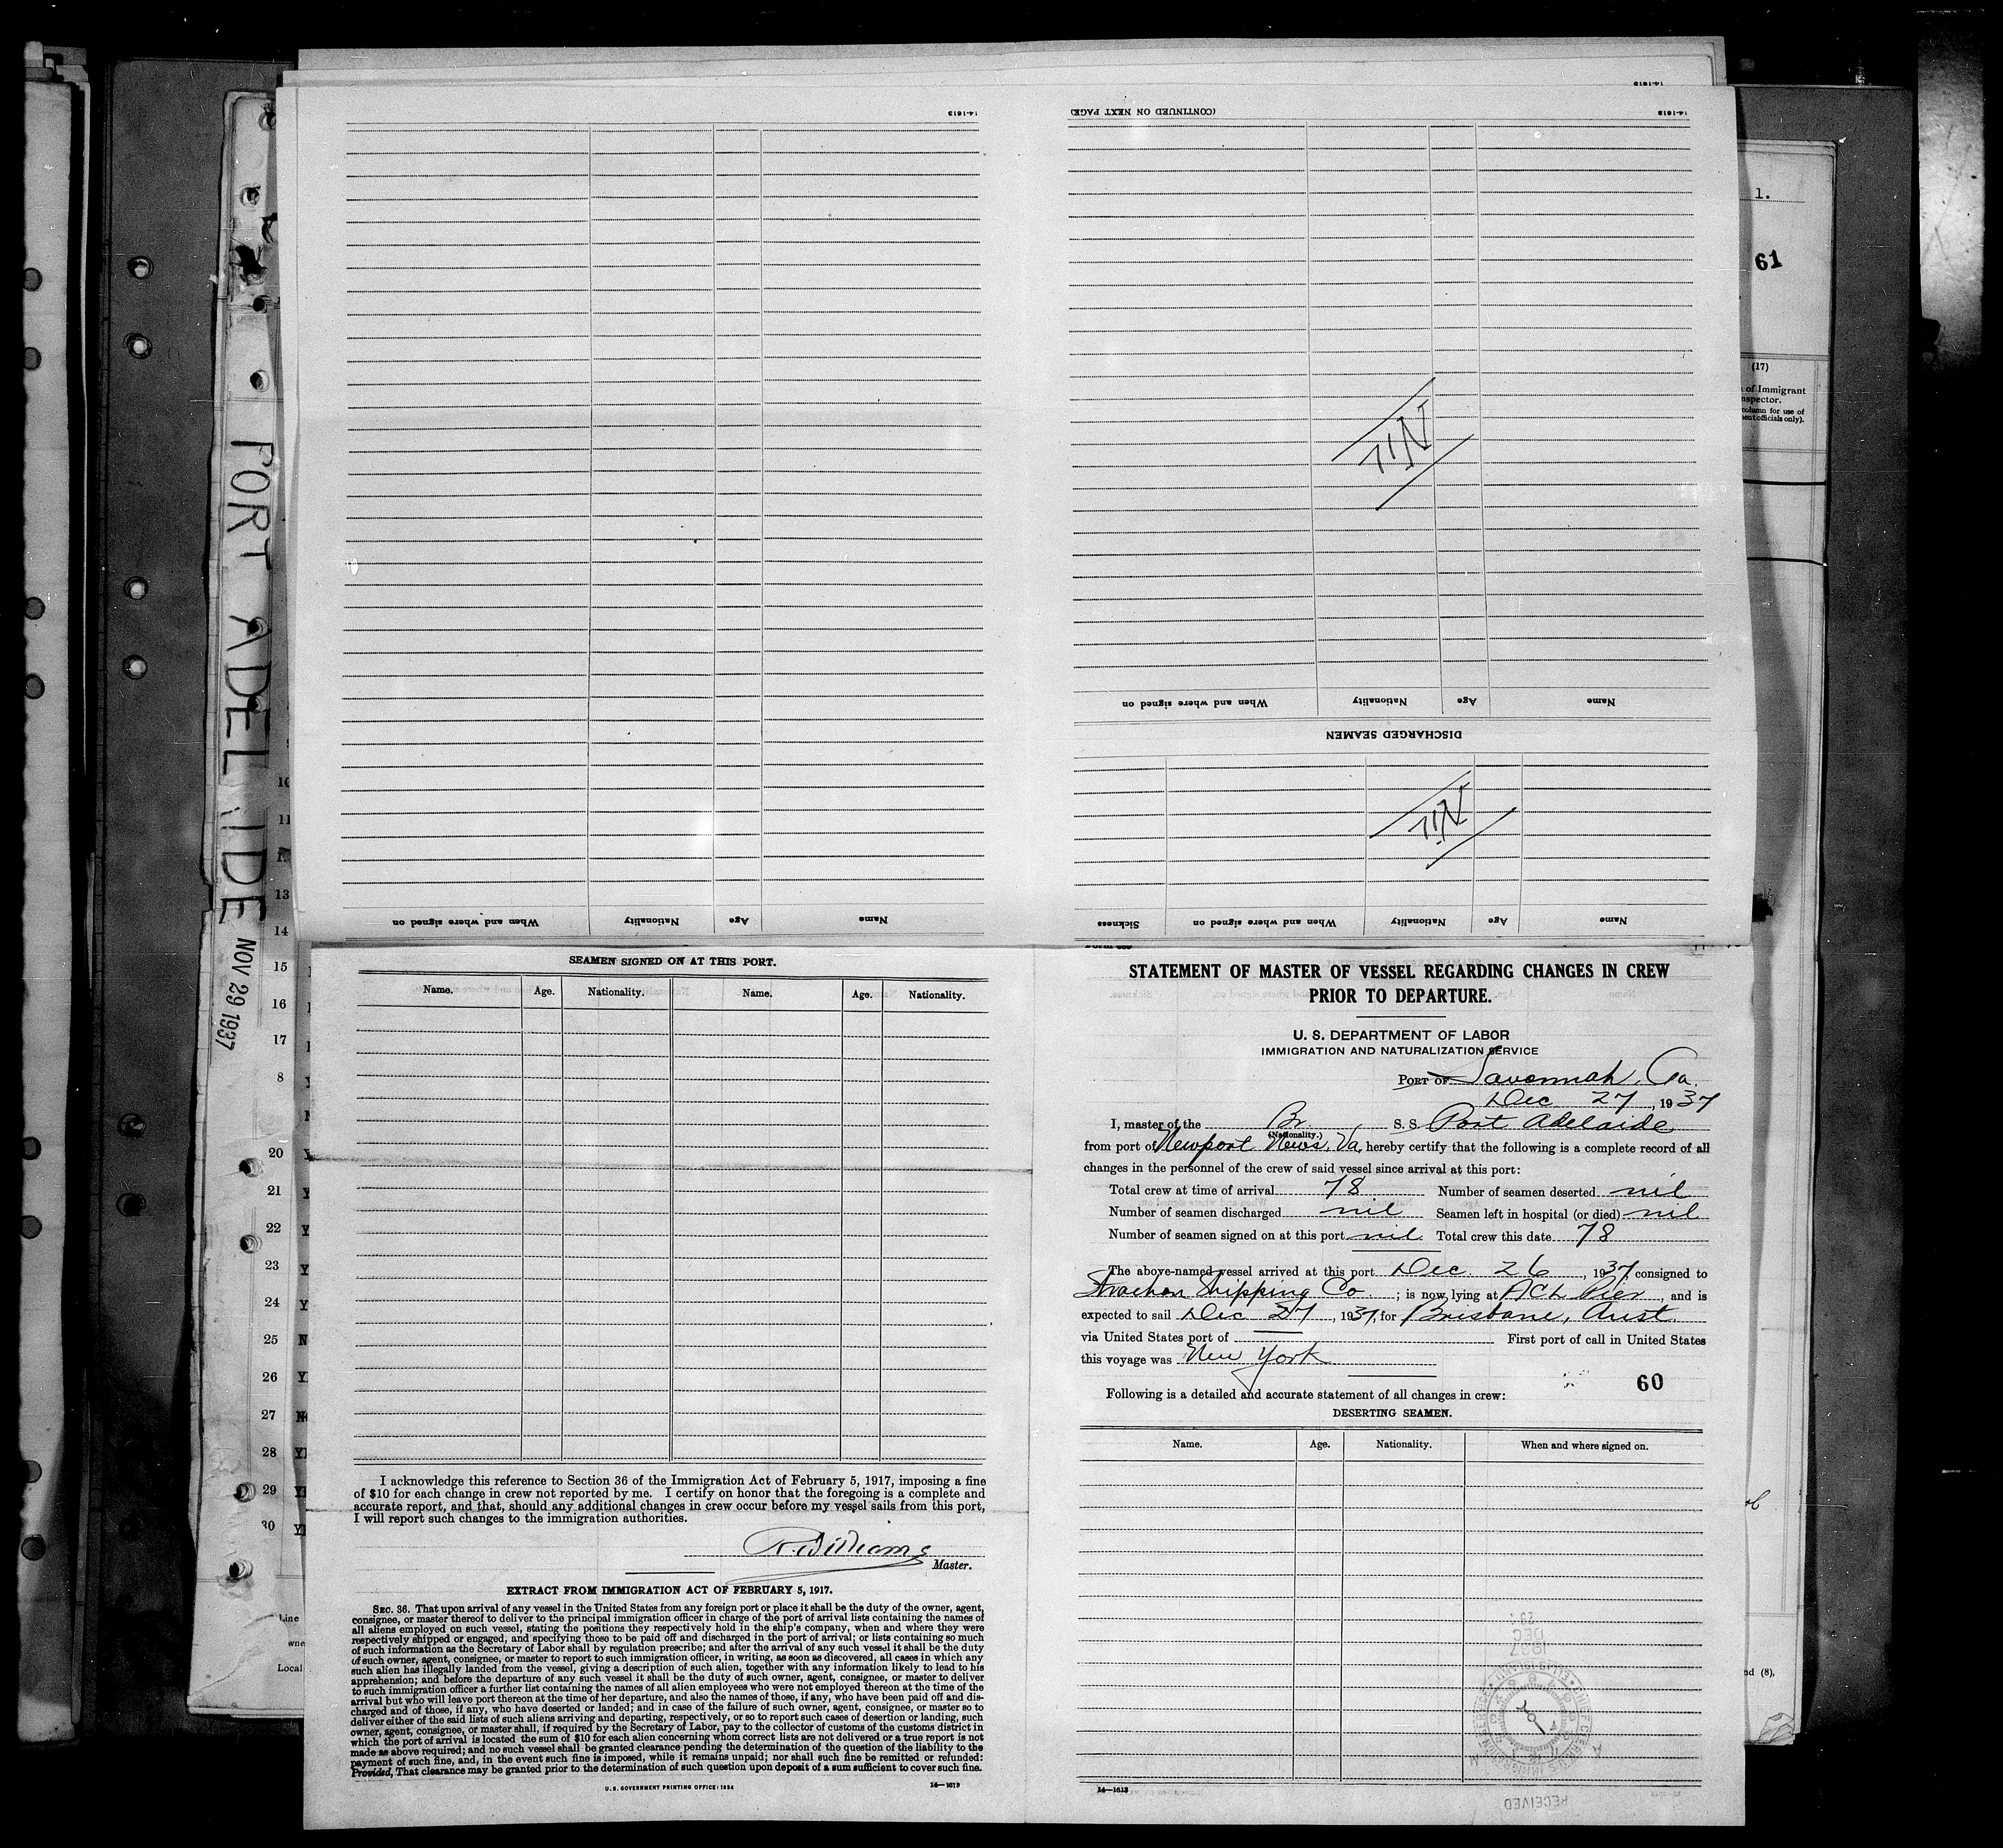 14-1613
(CONTINUED ON NEXT PAGE)
14-1613
14-1613
1.
61
(17)
of Immigrant
column for use of
officials only).
PORT ADELAIDE NOV 29 1937
Nil
When and where signed on
Nationality
Age
Name
DISCHARGED SEAMEN
Nil
Name
Age
Nationality
When and where signed on
Name
Age
Nationality
When and where signed on
Sickness
10
11
13
14
15
16
17
8
20
21
22
23
24
25
26
27
28
29
30
Line
Local
SEAMEN SIGNED ON AT THIS PORT.
Name. Age. Nationality. Name. Age. Nationality.
I acknowledge this reference to Section 36 of the Immigration Act of February 5, 1917, imposing a fine
of $10 for each change in crew not reported by me. I certify on honor that the foregoing is a complete and
accurate report, and that, should any additional changes in crew occur before my vessel sails from this port,
I will report such changes to the immigration authorities.
R. Williams
Master.
EXTRACT FROM IMMIGRATION ACT OF FEBRUARY 5, 1917.
SEC. 36. That upon arrival of any vessel in the United States from any foreign port or place it shall be the duty of the owner, agent,
consignee, or master thereof to deliver to the principal immigration officer in charge of the port of arrival lists containing the names of
all aliens employed on such vessel, stating the positions they respectively hold in the ship's company, when and where they were
respectively shipped or engaged, and specifying those to be paid off and discharged in the port of arrival; or lists containing so much
of such information as the Secretary of Labor shall by regulation prescribe; and after the arrival of any such vessel it shall be the duty
of such owner, agent, consignee, or master to report to such immigration officer, in writing, as soon as discovered, all cases in which any
such alien has illegally landed from the vessel, giving a description of such alien, together with any information likely to lead to his
apprehension; and before the departure of any such vessel it shall be the duty of such owner, agent, consignee, or master to deliver
to such immigration officer a further list containing the names of all alien employees who were not employed thereon at the time of the
arrival but who will leave port thereon at the time of her departure, and also the names of those, if any, who have been paid off and dis-
charged and of those, if any, who have deserted or landed; and in case of the failure of such owner, agent, consignee, or master so to
deliver either of the said lists of such aliens arriving and departing, respectively, or so to report such cases of desertion or landing, such
owner, agent, consignee, or master shall, if required by the Secretary of Labor, pay to the collector of customs of the customs district in
which the port of arrival is located the sum of $10 for each alien concerning whom correct lists are not delivered or a true report is not
made as above required; and no such vessel shall be granted clearance pending the determination of the question of the liability to the
payment of such fine, and, in the event such fine is imposed, while it remains unpaid; nor shall such fine be remitted or refunded:
Provided, That clearance may be granted prior to the determination of such question upon deposit of a sum sufficient to cover such fine.
U. S. GOVERNMENT PRINTING OFFICE: 1934 14—1613
STATEMENT OF MASTER OF VESSEL REGARDING CHANGES IN CREW
PRIOR TO DEPARTURE.
U. S. DEPARTMENT OF LABOR
IMMIGRATION AND NATURALIZATION SERVICE
PORT OF Savannah, Ga.
Dec 27, 1937
I, master of the Br. S. S. Port Adelaide
(Nationality.)
from port of Newport News, Va, hereby certify that the following is a complete record of all
changes in the personnel of the crew of said vessel since arrival at this port:
Total crew at time of arrival 78 Number of seamen deserted nil
Number of seamen discharged nil Seamen left in hospital (or died) nil
Number of seamen signed on at this port nil Total crew this date 78
The above-named vessel arrived at this port Dec. 26, 1937, consigned to
Strachan Shipping Co; is now lying at ACL Pier, and is
expected to sail Dec 27, 1937, for Brisbane, Aust.
via United States port of — First port of call in United States
this voyage was New York
60
Following is a detailed and accurate statement of all changes in crew:
DESERTING SEAMEN.
Name. Age. Nationality. When and where signed on.
1937
DEC
14—1613
RECEIVED